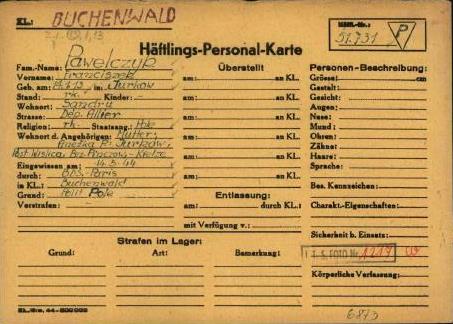 KL: BUCHENWALD
Häftl.-Nr.:
51.731
P
Häftlings-Personal-Karte
Fam.-Name: Pawelczyk
Vorname: Franciszek
Geb. am: in: Jurków
Stand: rk. Kinder: -
Wohnort: Sandru
Strasse: Dép. Allier
Religion: rk. Staatsang: Pole
Wohnort d. Angehörigen: Mutter,
P. Jurków,
Post Wislica, Bez. Kielce
Eingewiesen am: 14.5.44
durch: BDS. Paris
in KL.: Buchenwald
Grund: Polit Pole
Vorstrafen: -
Überstellt
am: an KL.
am: an KL.
am: an KL.
am: an KL.
am: an KL.
am: an KL.
Entlassung:
am: durch KL.:
mit Verfügung v.:
Personen-Beschreibung:
Grösse: cm
Gestalt:
Gesicht:
Augen:
Nase:
Mund:
Ohren:
Zähne:
Haare:
Sprache:
Bes. Kennzeichen:
Charakt.-Eigenschaften:
Sicherheit b. Einsatz:
I.T.S. FOTO Nr. 1217
Körperliche Verfassung:
Strafen im Lager:
Grund: Art: Bemerkung:
6813